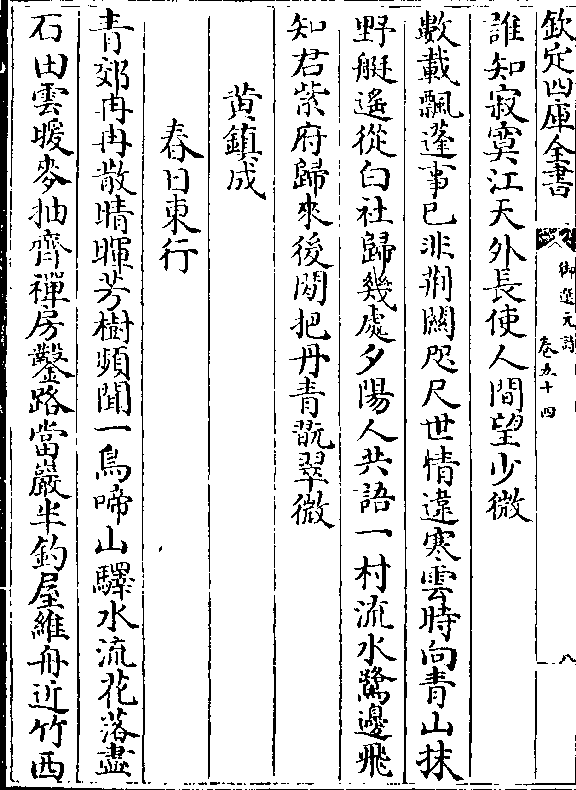 欽定四庫全書
御選元詩
卷五十四
八
誰知寂寞江天外長使人間望少微
數載飄蓬事已非荆關咫尺世情違寒雲時向青山抹
野艇遙從白社歸幾處夕陽人共語一村流水鷺邊飛
知君紫府歸來後閒把丹青翫翠微
黄鎮成
春日東行
青郊冉冉散晴暉芳樹頻聞一鳥啼山驛水流花落盡
石田雲暖麥抽齊禪房鑿路當巖半釣屋維舟近竹西